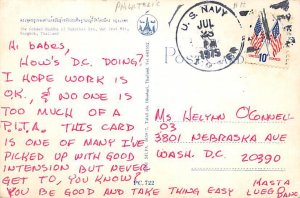 PHILATELIC
Bangkok, Thailand
Hi Babes,
How's D.C. doing?
I hope work is
O.K., & no one is
too much of a
P.I.T.A. This card
is one of many I've
picked up with good
intension but never
get to, you know?
You be good and take thing easy
PC. 722
POST
U.S. NAVY
JUL
PM
1975
10¢
Ms Helynn O'Connell
03
3801 Nebraska Ave
Wash. D.C. 20390
Masta